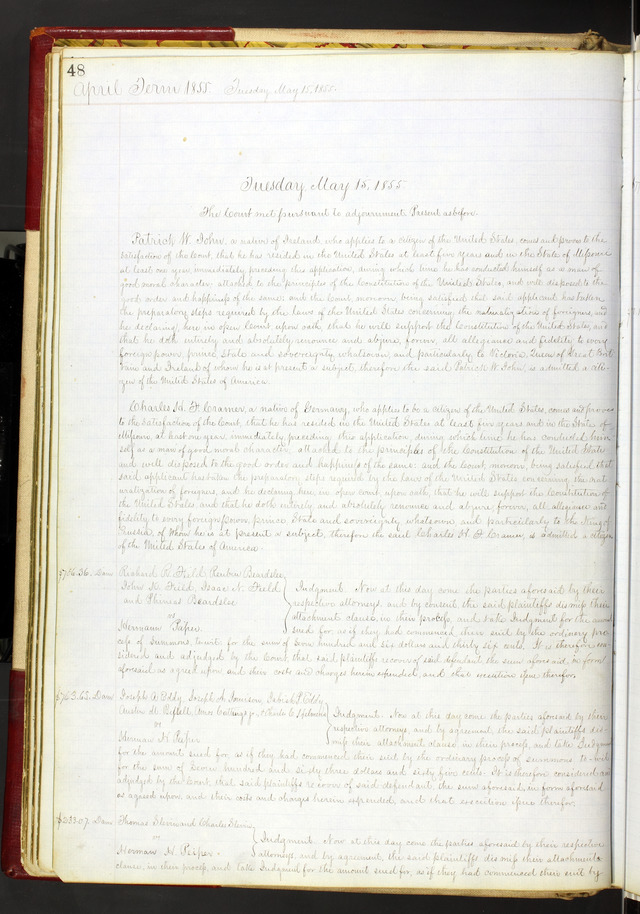 48
April Term 1855. Tuesday May 15, 1855.
Tuesday May 15, 1855
The Court met pursuant to adjournment. Present as before.
Patrick W. John, a native of Ireland, who applies to a citizen of the United States, comes and proves to the
satisfaction of the Court, that he has resided in the United States at least five years and in the State of Missouri
at least one year, immediately preceding this application, during which time he has conducted himself as a man of
good moral character, attached to the principles of the Constitution of the United States, and well disposed to the
good order and happiness of the same: and the Court, moreover, being satisfied that said applicant has taken
the preparatory steps required by the laws of the United States concerning the naturalization of foreigners, and
he declaring here in open Court upon oath, that he will support the Constitution of the United States, and
that he doth entirely and absolutely renounce and abjure, forever, all allegiance and fidelity to every
foreign power, prince State and sovereignty whatsoever, and particularly to Victoria, Queen of Great Brit-
tain and Ireland of whom he is at present a subject, therefore the said Patrick W. John, is admitted a citi-
zen of the United States of America.
Charles H. F. Cramer, a native of Germany, who applies to be a citizen of the United States, comes and proves
to the satisfaction of the Court, that he has resided in the United States at least five years and in the State of
Missouri, at least one year, immediately preceding this application, during which time he has conducted him
self as a man of good moral character, attached to the principles of the Constitution of the United States
and well disposed to the good order and happiness of the same: and the Court, moreover, being satisfied that
said applicant has taken the preparatory steps required by the laws of the United States concerning the nat
uralization of foreigners, and he declaring here, in open court, upon oath, that he will support the Constitution of
the United States, and that he doth entirely and absolutely renounce and abjure forever, all allegiance and
fidelity to every foreign power, prince State and sovereignty whatsoever, and particularly to the King of
Prussia, of whom he is at present a subject, therefore the said Charles H. F. Cramer, is admitted a citizen
of the United States of America.
$706.36. Dam Richard K. Field Reuben Beardslee,
John K. Field, Isaac N. Field
and Phineas Beardslee
vs
Hermann Peiper.
Judgment. Now at this day come the parties aforesaid by their
respective attorneys, and by consent the said plaintiffs dismiss their
attachment clause, in their process, and take Judgment for the amount
sued for, as if they had commenced their suit by the ordinary pro
cess of summons, to wit: for the sum of Seven hundred and six dollars and thirty six cents. It is therefore con
sidered and adjudged by the Court, that said plaintiffs recover of said defendant the sum aforesaid, in form
aforesaid as agreed upon and their costs and charges herein expended, and that execution issue therefor.
$763.65. Dam Joseph A. Eddy, Joseph A. Jamison,
vs
Herman H. Peiper
Judgment. Now at this day come the parties aforesaid by their
respective attorneys, and by agreement, the said plaintiffs dis-
miss their attachment clause, in their process, and take Judgment
for the amount sued for, as if they had commenced their suit by the ordinary process of summons to-wit
for the sum of Seven hundred and sixty three dollars and sixty five cents. It is therefore considered and
adjudged by the Court, that said plaintiffs recover of said defendant, the sum aforesaid, in form aforesaid
as agreed upon, and their costs and charges herein expended, and that execution issue therefor.
$333.07. Dam Thomas Stern and Charles Stern,
vs
Herman H. Peiper.
Judgment. Now at this day come the parties aforesaid by their respective
attorneys, and by agreement, the said plaintiffs dismiss their attachment
clause, in their process, and take Judgment for the amount sued for, as if they had commenced their suit by